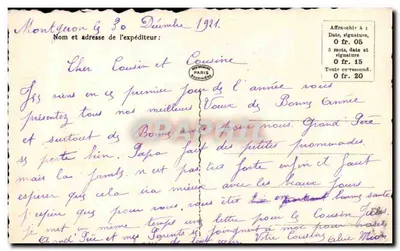 Montgeron le 30 Décembre 1921.
Nom et adresse de l'expéditeur:
Affranchir à :
Date, signature,
0 fr. 05
5 mots, date et
signature
0 fr. 15
0 fr. 20
PARIS
Cher Cousin et Cousine
viens en ce premier jour de l'année vous
présenter tous nos meilleurs Vœux de Bonne Année
et surtout de Bonne Grand Père
se porte bien. Papa fait des petites promenades
mais la jambe n'est pas très forte enfin il faut
espérer que cela ira mieux avec les beaux jours
J'espère que pour vous, vous êtes bonne santé
Je met en même temps une lettre pour le cousin Jules
Grand Père et mes Parents se joignent à moi pour
cœur Votre Cousine